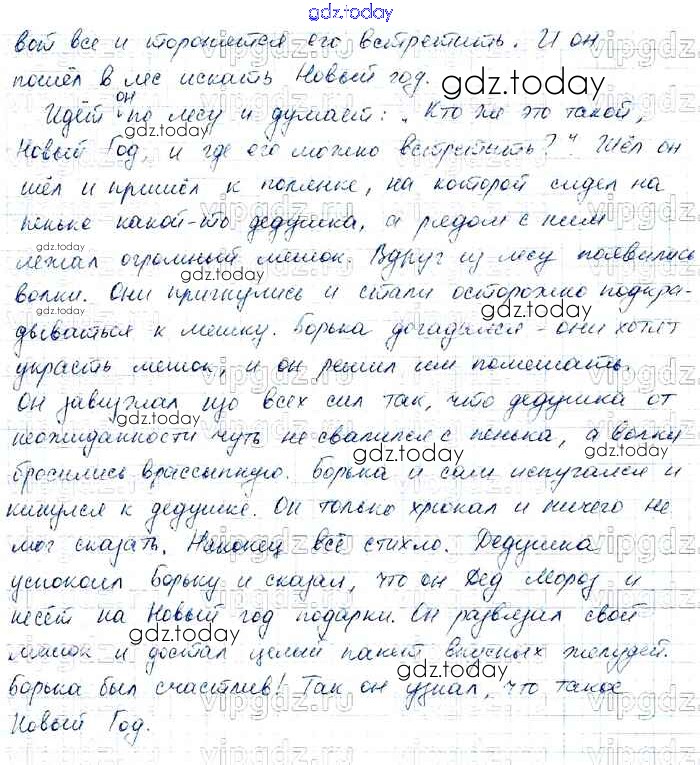 gdz.today
вот все и торопятся его встретить. И он
пошёл в лес искать Новый год.
gdz.today
он
Идёт по лесу и думает: „Кто же это такой,
gdz.today
Новый Год, и где его можно встретить?" Шёл он
шёл и пришёл к полянке, на которой сидел на
пеньке какой-то дедушка, а рядом с ним
gdz.today
лежал огромный мешок. Вдруг из лесу появились
gdz.today
волки. Они пригнулись и стали осторожно подкра-
дываться к мешку. Борька догадался - они хотят
gdz.today
украсть мешок, и он решил им помешать.
Он завизжал изо всех сил так, что дедушка от
неожиданности чуть не свалился с пенька, а волки
gdz.today
бросились врассыпную. Борька и сам испугался и
кинулся к дедушке. Он только хрюкал и ничего не
мог сказать. Наконец всё стихло. Дедушка
gdz.today
успокоил Борьку и сказал, что он Дед Мороз и
несёт на Новый год подарки. Он развязал свой
gdz.today
мешок и достал целый пакет вкусных желудей.
gdz.today
Борька был счастлив! Так он узнал, что такое
Новый Год.